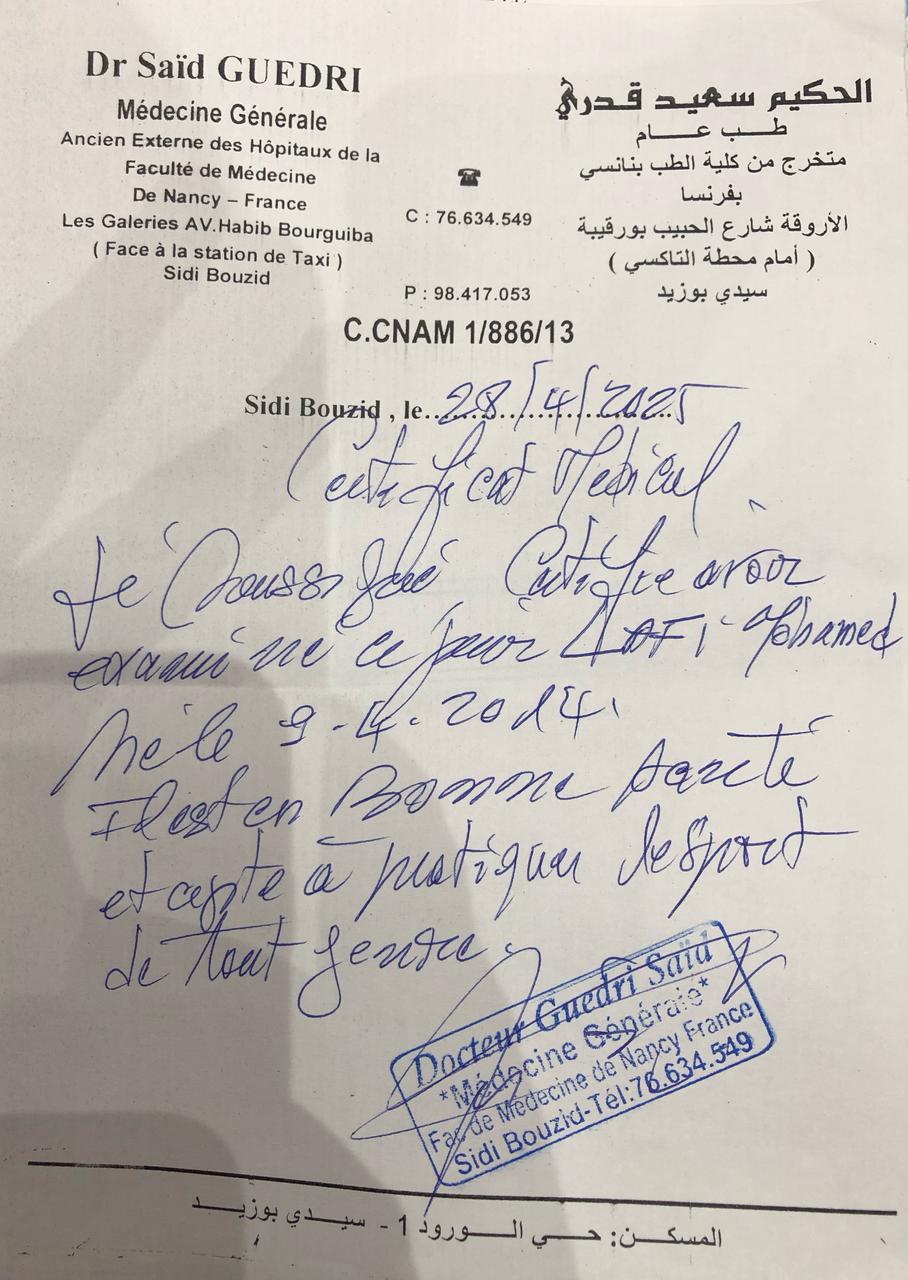 Dr Saïd GUEDRI
Médecine Générale
Ancien Externe des Hôpitaux de la
Faculté de Médecine
De Nancy – France
Les Galeries AV.Habib Bourguiba
( Face à la station de Taxi )
Sidi Bouzid
الحكيم سعيد قدري
طب عام
متخرج من كلية الطب بنانسي
بفرنسا
الأروقة شارع الحبيب بورقيبة
( أمام محطة التاكسي )
سيدي بوزيد
☎
C : 76.634.549
P : 98.417.053
C.CNAM 1/886/13
Sidi Bouzid , le 28/4/2025
Certificat Médical
Je Soussigné Certifie avoir
examiné ce jour LAFI Mohamed
Né le 9-4-2014.
Il est en Bonne Santé
et apte à pratiquer le sport
de tout genre.
Docteur Guedri Saïd
*Médecine Générale*
Fac de Médecine de Nancy France
Sidi Bouzid-Tél:76.634.549
المسكن: حي الورود 1 - سيدي بوزيد